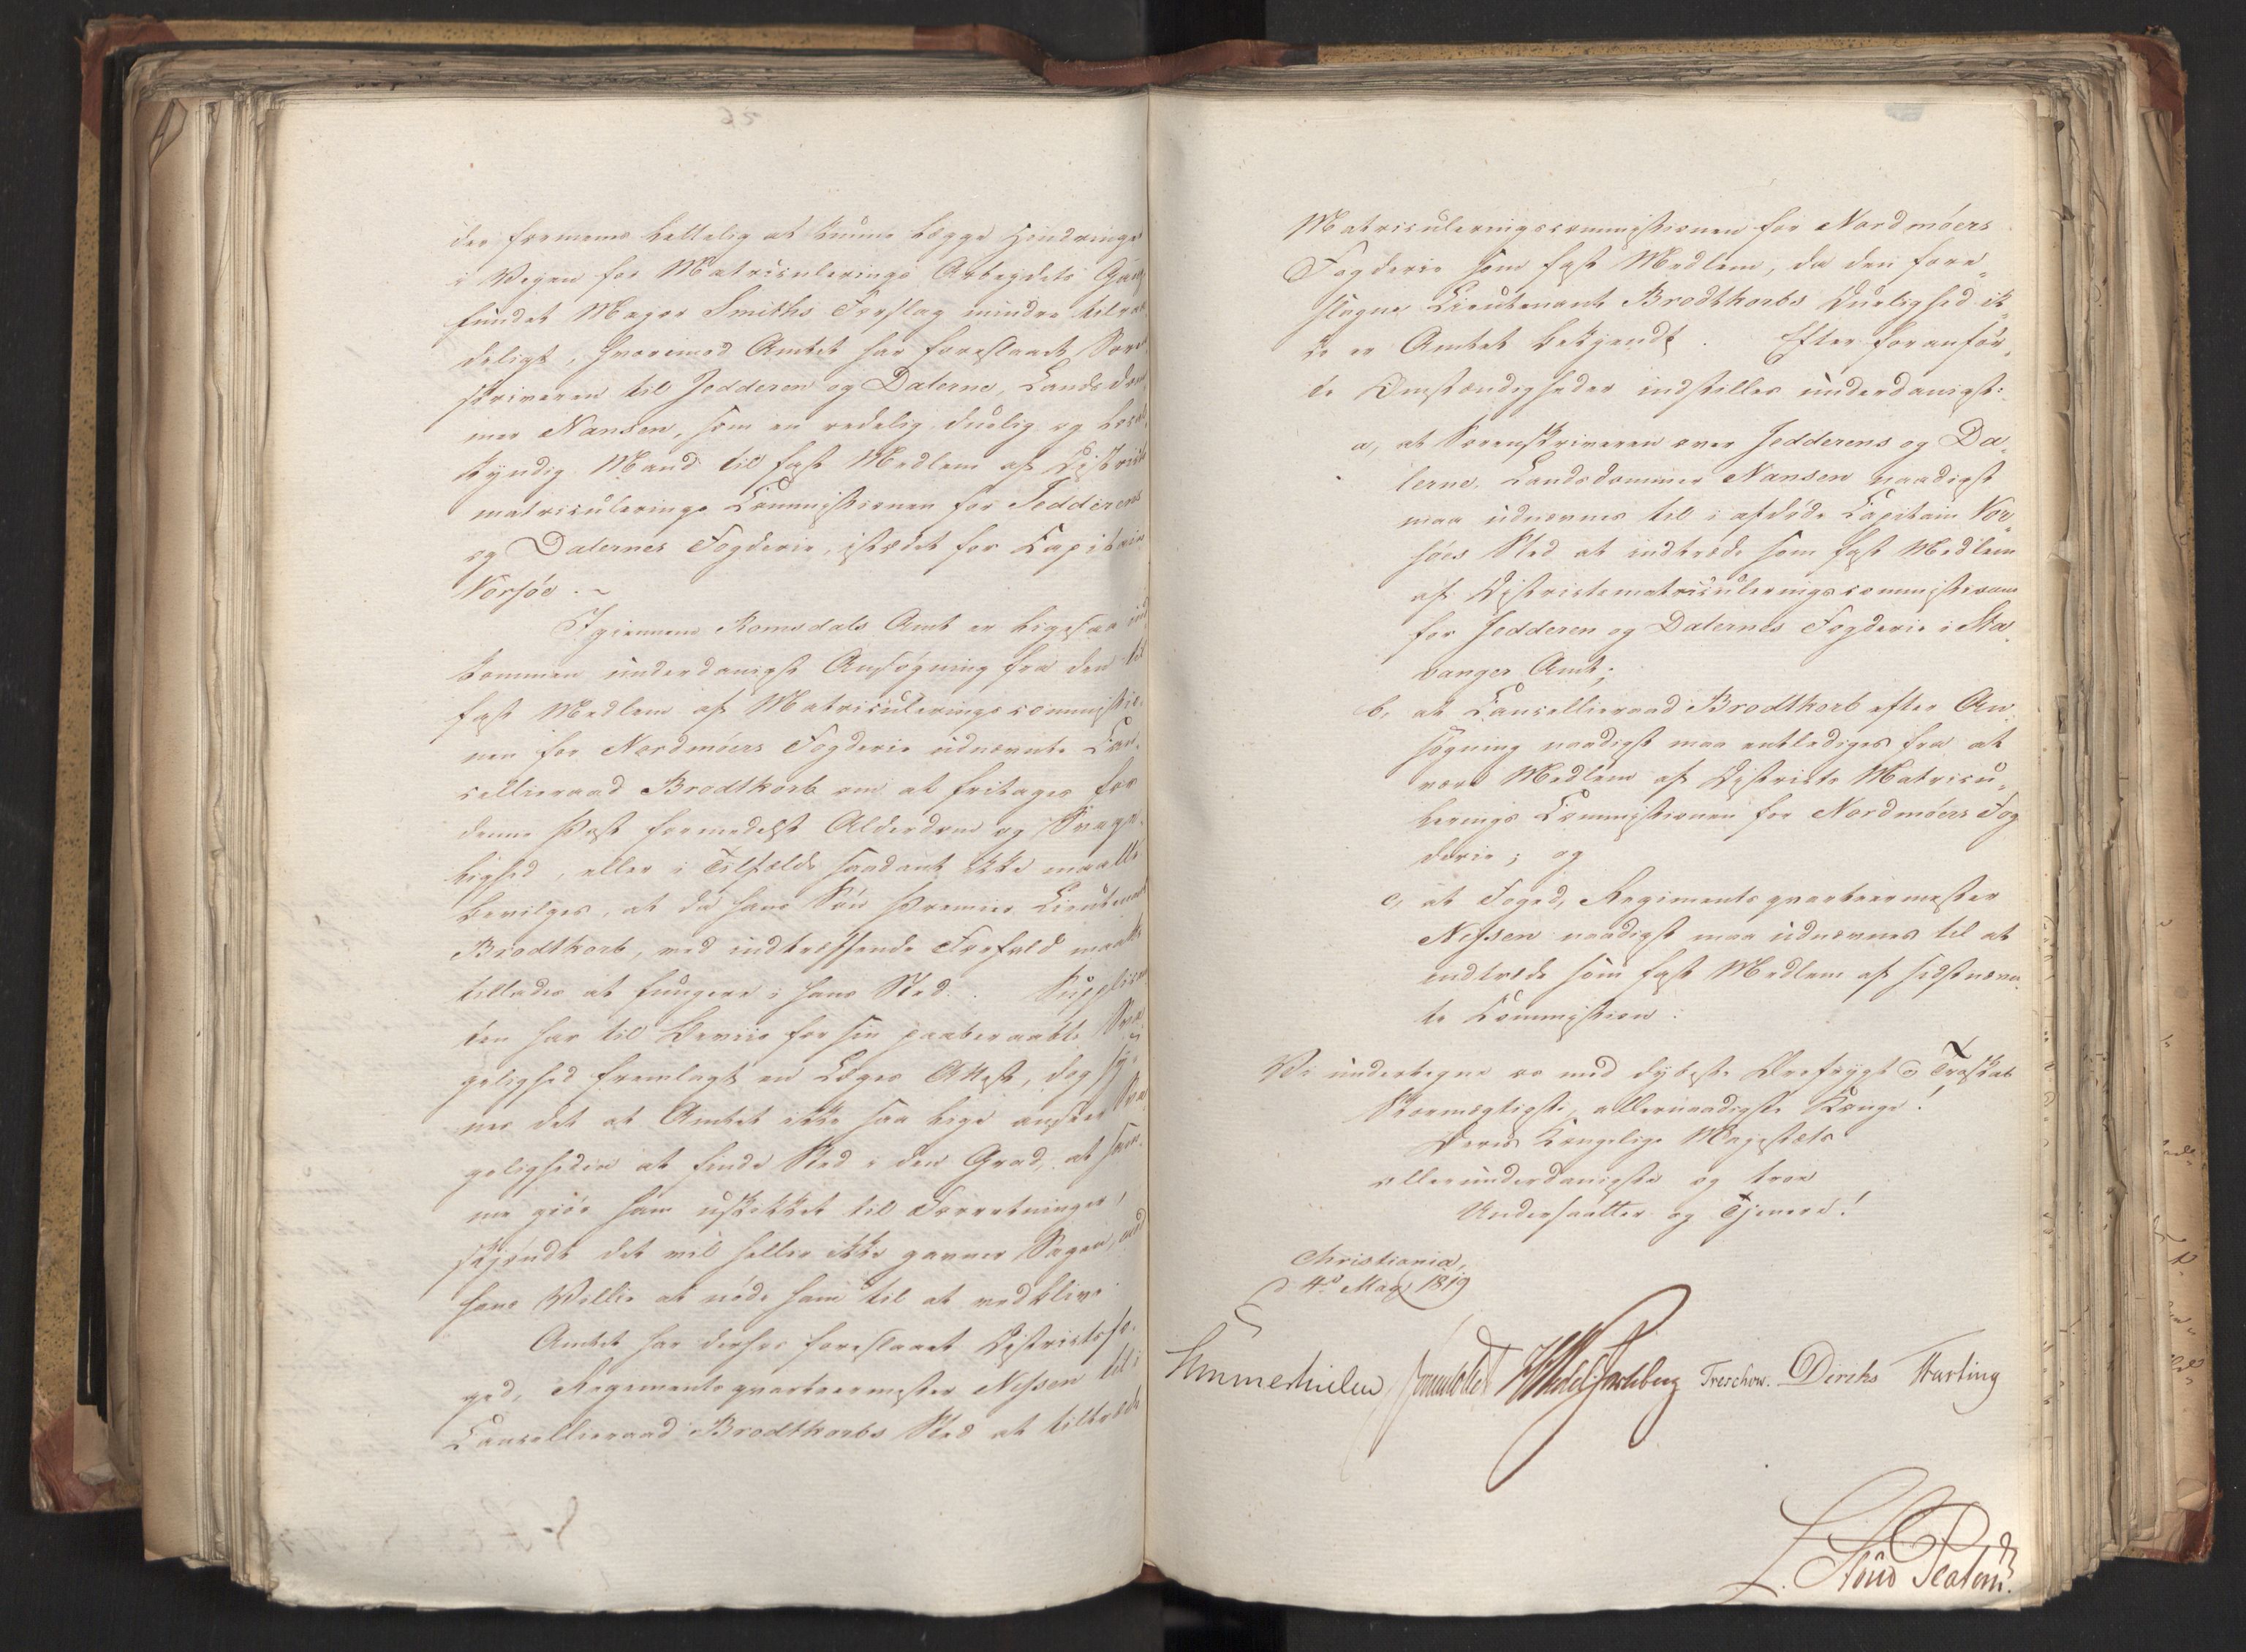 der formeens lettelig at kunne lægge Hindringer
i Veyen for Matriculerings Arbeydets Gang
fundet Major Smiths Forslag mindre tilraa-
deligt, hvorimod Amtet har foreslaaet Soren-
skriveren til Jedderen og Dalerne, Landsdom-
mer Nansen, som en redelig duelig og local-
kyndig Mand til fast Medlem af Districts
matriculerings Commissionen for Jedderens
og Dalernes Fogderie, istædet for Capitain
Norsöe.
Igiennem Romsdals Amt er ligesaa ind
kommen underdanigst Ansögning fra den til
fast Medlem af Matriculeringscommissio-
nen for Nordmöers Fogderie udnævnte Can-
cellieraad Brodtkorb om at fritages for
denne Post formedelst Alderdom og Svage-
lighed, eller i Tilfælde saadant ikke maatte
bevilges, at da hans Sön Premier Lieutenant
Brodtkorb, ved indtræffende Forfald maatte
tillades at fungere i hans Sted. Supplican
ten har til Beviis for sin paaberaabte Sva-
gelighed fremlagt en Læges Attest, dog sy-
nes det at Amtet ikke saa lige anseer Sva-
geligheden at finde Sted i den Grad, at sam-
me giör ham uskikket til Forretninger,
skjöndt det vil heller ikke gavner Sagen, mod
hans Villie at nöde ham til at vedblive
Amtet har derhos foreslaaet Districtsfo-
ged, Regimentsqvarteermester Nissen til i
Cancellieraad Brodtkorbs Sted at tiltræde
Matriculeringscommissionen for Nordmöers
Fogderie som fast Medlem, da den fore-
slagne Lieutenant Brodtkorbs Duelighed ik-
ke er Amtet bekjendt. Efter foranför-
te Omstændigheder indstilles underdanigst:
a, at Sorenskriveren over Jedderens og Da-
lerne, Landsdommer Nansen naadigst
maa udnævnes til i afdöde Capitain Nor-
söes Sted at indtræde som fast Medlem
af Districtsmatriculeringscommissionen
for Jedderen og Dalernes Fogderie i Sta-
vanger Amt;
b, at Cancellieraad Brodtkorb efter An-
sögning naadigst maa entlediges fra at
være Medlem af Districts Matricu-
lerings Commissionen for Nordmöers Fog
derie; og
c, at Foged, Regimentsqvarteermester
Nissen naadigst maa udnævnes til at
indtræde som fast Medlem af sidstnævn-
te Commission.
Vi undertegne os med dybeste Ærefrygt og Troskab
Stormægtigste, allernaadigste Konge!
Deres Kongelige Majestæts
allerunderdanigste og troe
Undersaatter og Tjenere!
Christiania,
d 4de May 1819
Sommerhielm HWedel Jarlsberg Treschow. Diriks Fasting
L. Stoud Platou